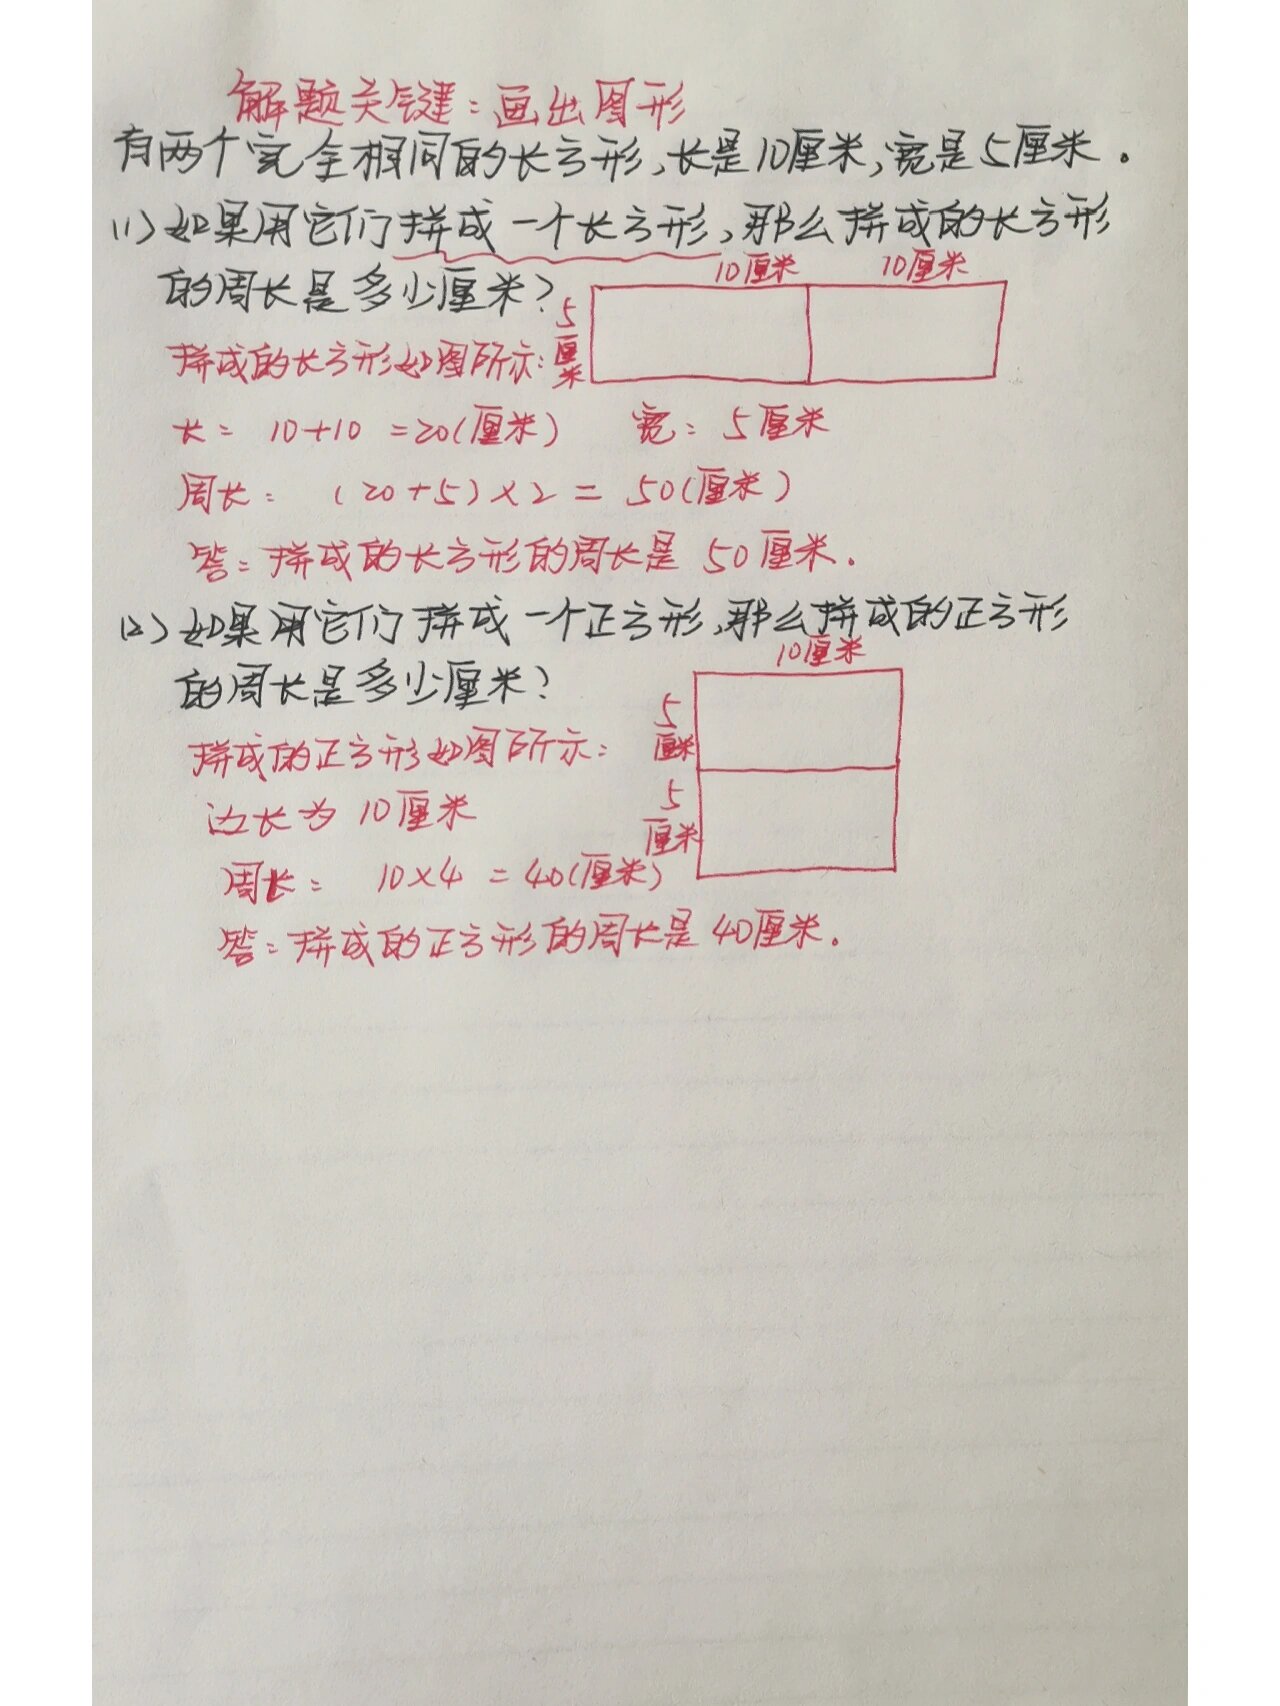 解题关键:画出图形
有两个完全相同的长方形,长是10厘米,宽是5厘米。
(1)如果用它们拼成一个长方形,那么拼成的长方形
的周长是多少厘米?
10厘米 10厘米
5厘米
拼成的长方形如图所示:
长= 10+10 =20(厘米) 宽: 5厘米
周长: (20+5)×2= 50(厘米)
答:拼成的长方形的周长是 50厘米.
(2)如果用它们拼成一个正方形,那么拼成的正方形
的周长是多少厘米?
10厘米
5厘米
5厘米
拼成的正方形如图所示:
边长为 10厘米
周长: 10×4 =40(厘米)
答:拼成的正方形的周长是40厘米.